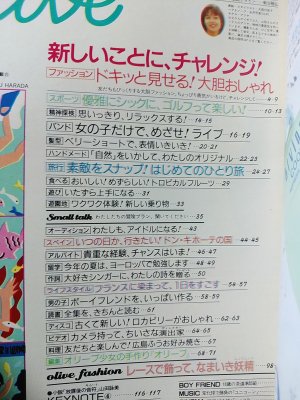 live
HARADA
新しいことに、チャレンジ!
ファッション ドキッと見せる!大胆おしゃれ
4-9
スポーツ 優雅にシックに、ゴルフって楽しい! 10-13
精神探検 思いっきり、リラックスする! 14-15
バンド 女の子だけで、めざせ!ライブ 16-19
髪型 ベリーショートで、表情いきいき! 20-21
ハンドメード 「自然」をいかして、わたしのオリジナル 22-23
旅行 素敵をスナップ!はじめてのひとり旅 24-27
食べる おいしい!めずらしい!トロピカルフルーツ 29
遊び いたずら上手になる! 31
遊園地 ワクワク体験!新しい乗り物 33
Small talk わたしたちの冒険プラン、聞いてください 35
オーディション わたしも、アイドルになる! 43
スペイン いつの日か、行きたい!ドン・キホーテの国 44-45
アルバイト 貴重な経験、チャンスはいま! 46-47
留学 今年の夏は、ヨーロッパで勉強します 48-49
作詞 大好きシンガーに、わたしの詩を贈る 50-51
ライフスタイル フランスに染まって、1日をすごす 54-57
男の子 ボーイフレンドを、いっぱい作る 58-59
読書 全集を、きちんと読む 61
ディスコ 古くて新しい!ロカビリーがおしゃれ 62-63
ビデオ カメラ持って、ちいさな演出家 64-65
料理 友だちと楽しんで!広島ふうお好み焼き 66-67
編集 オリーブ少女の手作り“オリーブ” 68-71
olive fashion レースで飾って、なまいき妖精 98
KEYNOTE④ 116-117
BOY FRIEND
MUSIC